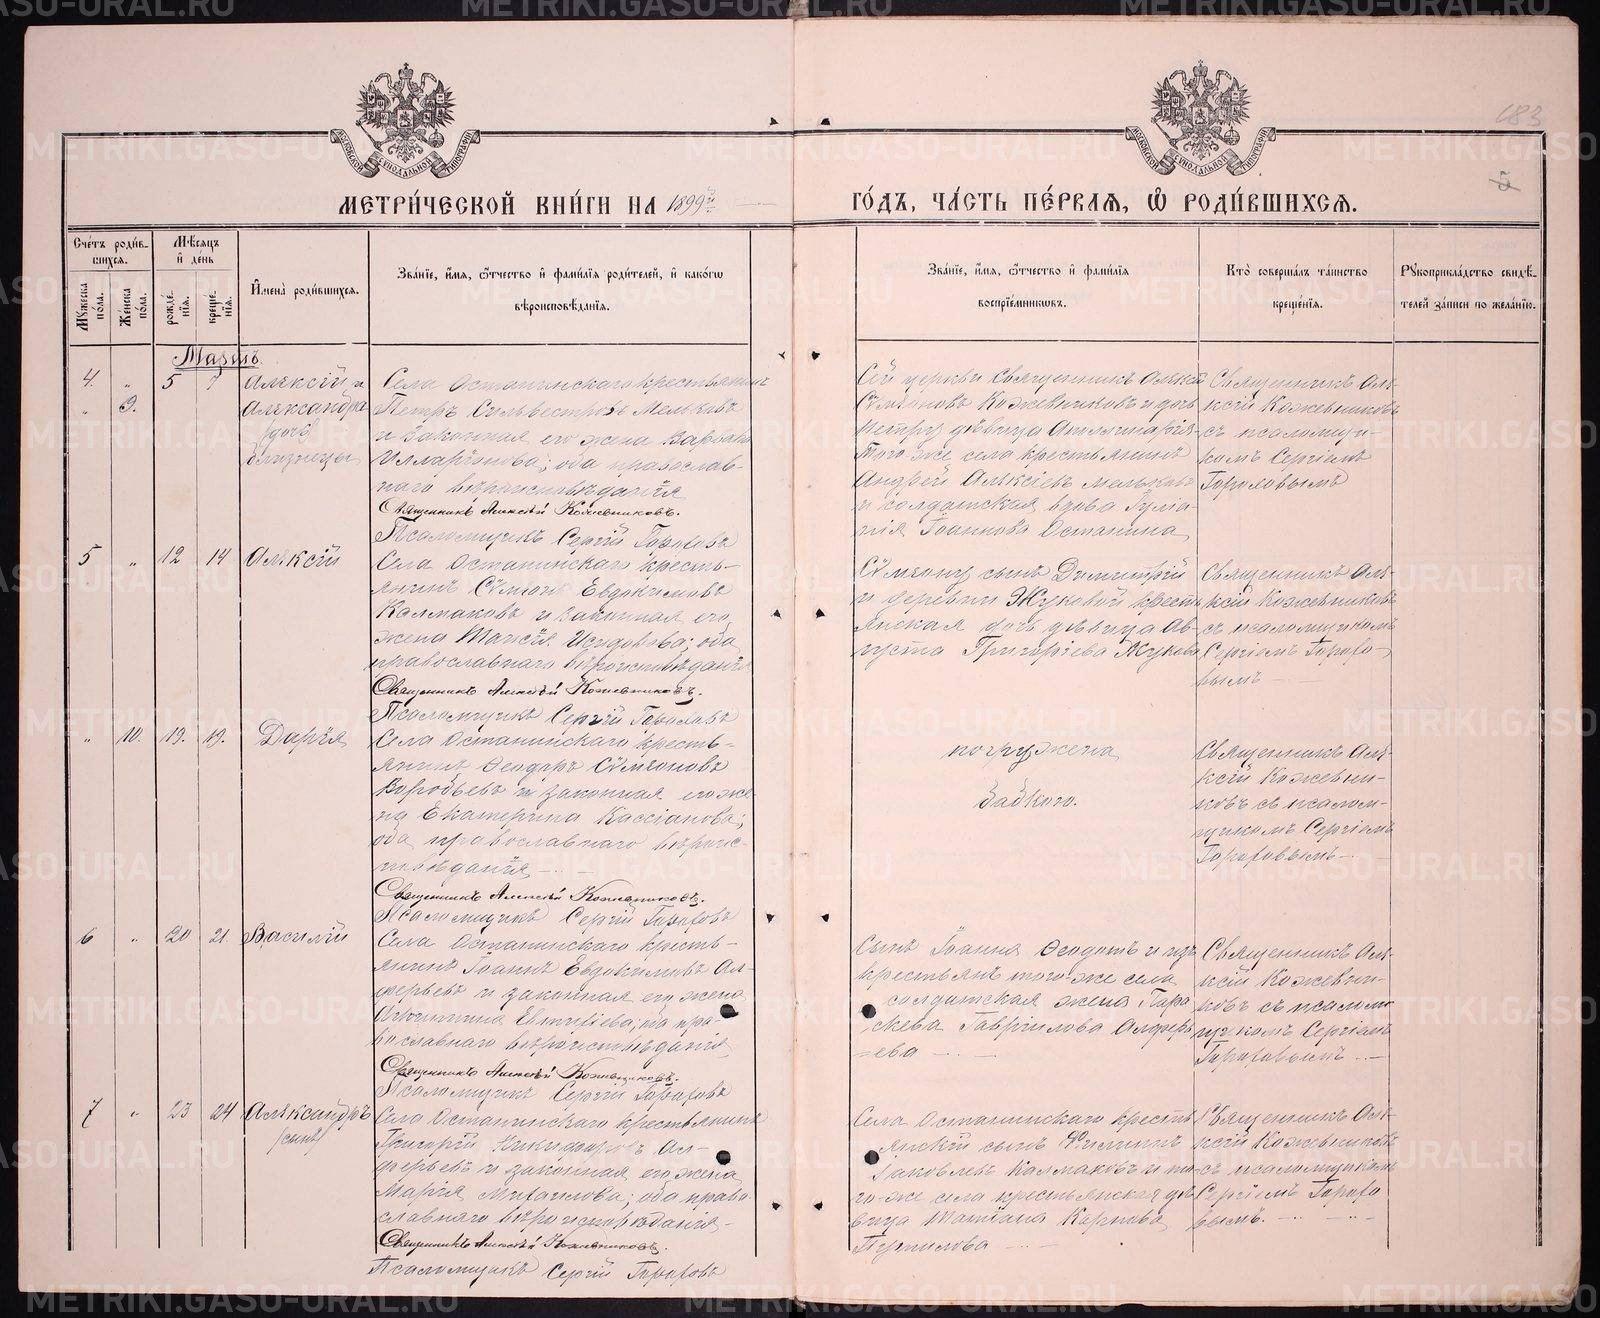 МЕТРИ́ЧЕСКОЙ КНИ́ГИ НА 1899й
ГО́ДЪ, ЧА́СТЬ ПЕ́РВАЯ, Ѡ РОДИ́ВШИХСЯ.
183
5
Сче́тъ роди́в-
шихся.
Мѣ́сяцъ
и де́нь
Му́жеска по́ла.
Же́нска по́ла.
рожде́нія.
креще́нія.
И́мена роди́вшихся.
Зва́ніе, и́мя, ѻ́тчество и фами́лія роди́телей, и како́гѡ
вѣроисповѣ́данія.
Зва́ніе, и́мя, ѻ́тчество и фами́лія
воспріе́мниковъ.
Кто̀ соверша́лъ та́инство
креще́нія.
Рꙋкоприкла́дство свидѣ́-
телей за́писи по жела́нію.
Мартъ.
4. " 5 7 Алексій и
" 9. Александра
(дочь)
близнецы
Села Останинскаго крестьянинъ
Петръ Сильвестровъ Мельковъ
и законная его жена Варвара
Илларіонова; оба православ-
наго вѣроисповѣданія
Священникъ Алексѣй Кожевниковъ.
Псаломщикъ Сергій Гороховъ
Сей церкви Священникъ Алексій
Сѵмеоновъ Кожевниковъ и дочь
Петру дѣвица Апплинарія
Того же села крестьянинъ
Андрей Алексіевъ Мельковъ
и солдатская вдова Іулиа-
нія Іоаннова Останина
Священникъ Але-
ксій Кожевниковъ
съ псаломщи-
комъ Сергіемъ
Гороховымъ
5 " 12 14 Алексій
Села Останинскаго кресть-
янинъ Сѵмеонъ Евдокимовъ
Калмаковъ и законная его
жена Таисія Исидорова; оба
православнаго вѣроисповѣданія
Священникъ Алексѣй Кожевниковъ.
Псаломщикъ Сергій Гороховъ
Сѵмеону сынъ Димитрій
и деревни Жуковой кресть
янская дочь дѣвица Ав-
густа Григоріева Жукова
Священникъ Але-
ксій Кожевниковъ
съ псаломщикомъ
Сергіемъ Горохо-
вымъ
" 10. 19. 19. Дарія
Села Останинскаго кресть-
янинъ Ѳеодоръ Сѵмеоновъ
Воробьевъ и законная его же-
на Екатерина Кассіанова;
оба православнаго вѣроис-
повѣданія
Священникъ Алексѣй Кожевниковъ.
Псаломщикъ Сергій Гороховъ
погружена
бабкою.
Священникъ Але-
ксій Кожевни-
ковъ съ псалом-
щикомъ Сергіемъ
Гороховымъ
6 " 20 21. Василій
Села Останинскаго кресть-
янинъ Іоаннъ Евдокимовъ Ал-
ферьевъ и законная его жена
Евтихіева; оба пра-
вославнаго вѣроисповѣданія
Священникъ Алексѣй Кожевниковъ.
Псаломщикъ Сергій Гороховъ
Сынъ Іоанна Ѳеодотъ и изъ
крестьянъ того-же села
солдатская жена Пара
скева Гавріилова Алферь
=ева
Священникъ Але-
ксій Кожевни-
ковъ съ псалом-
щикомъ Сергіемъ
Гороховымъ
7 " 23 24 Александръ
(сынъ)
Села Останинскаго крестьянинъ
Григорій Никифоровъ Ал-
ферьевъ и законная его жена
Марія Михаилова; оба право
славнаго вѣроисповѣданія
Священникъ Алексѣй Кожевниковъ.
Псаломщикъ Сергій Гороховъ
Села Останинскаго кресть
янскій сынъ Филиппъ
Іаковлевъ Калмаковъ и то-
го-же села крестьянская дѣ
вица Татіана Карпова
Священникъ Але-
ксій Кожевниковъ
съ псаломщикомъ
Сергіемъ Горохо
вымъ.
METRIKI.GASO-URAL.RU